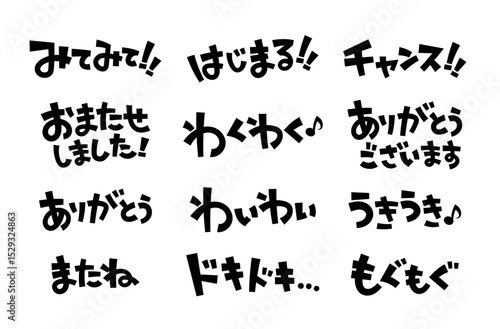 みてみて!!
はじまる!!
チャンス!!
おまたせ
しました!
わくわく♪
ありがとう
ございます
ありがとう
わいわい
うきうき♪
またね
ドキドキ...
もぐもぐ
Adobe Stock | #1529324863